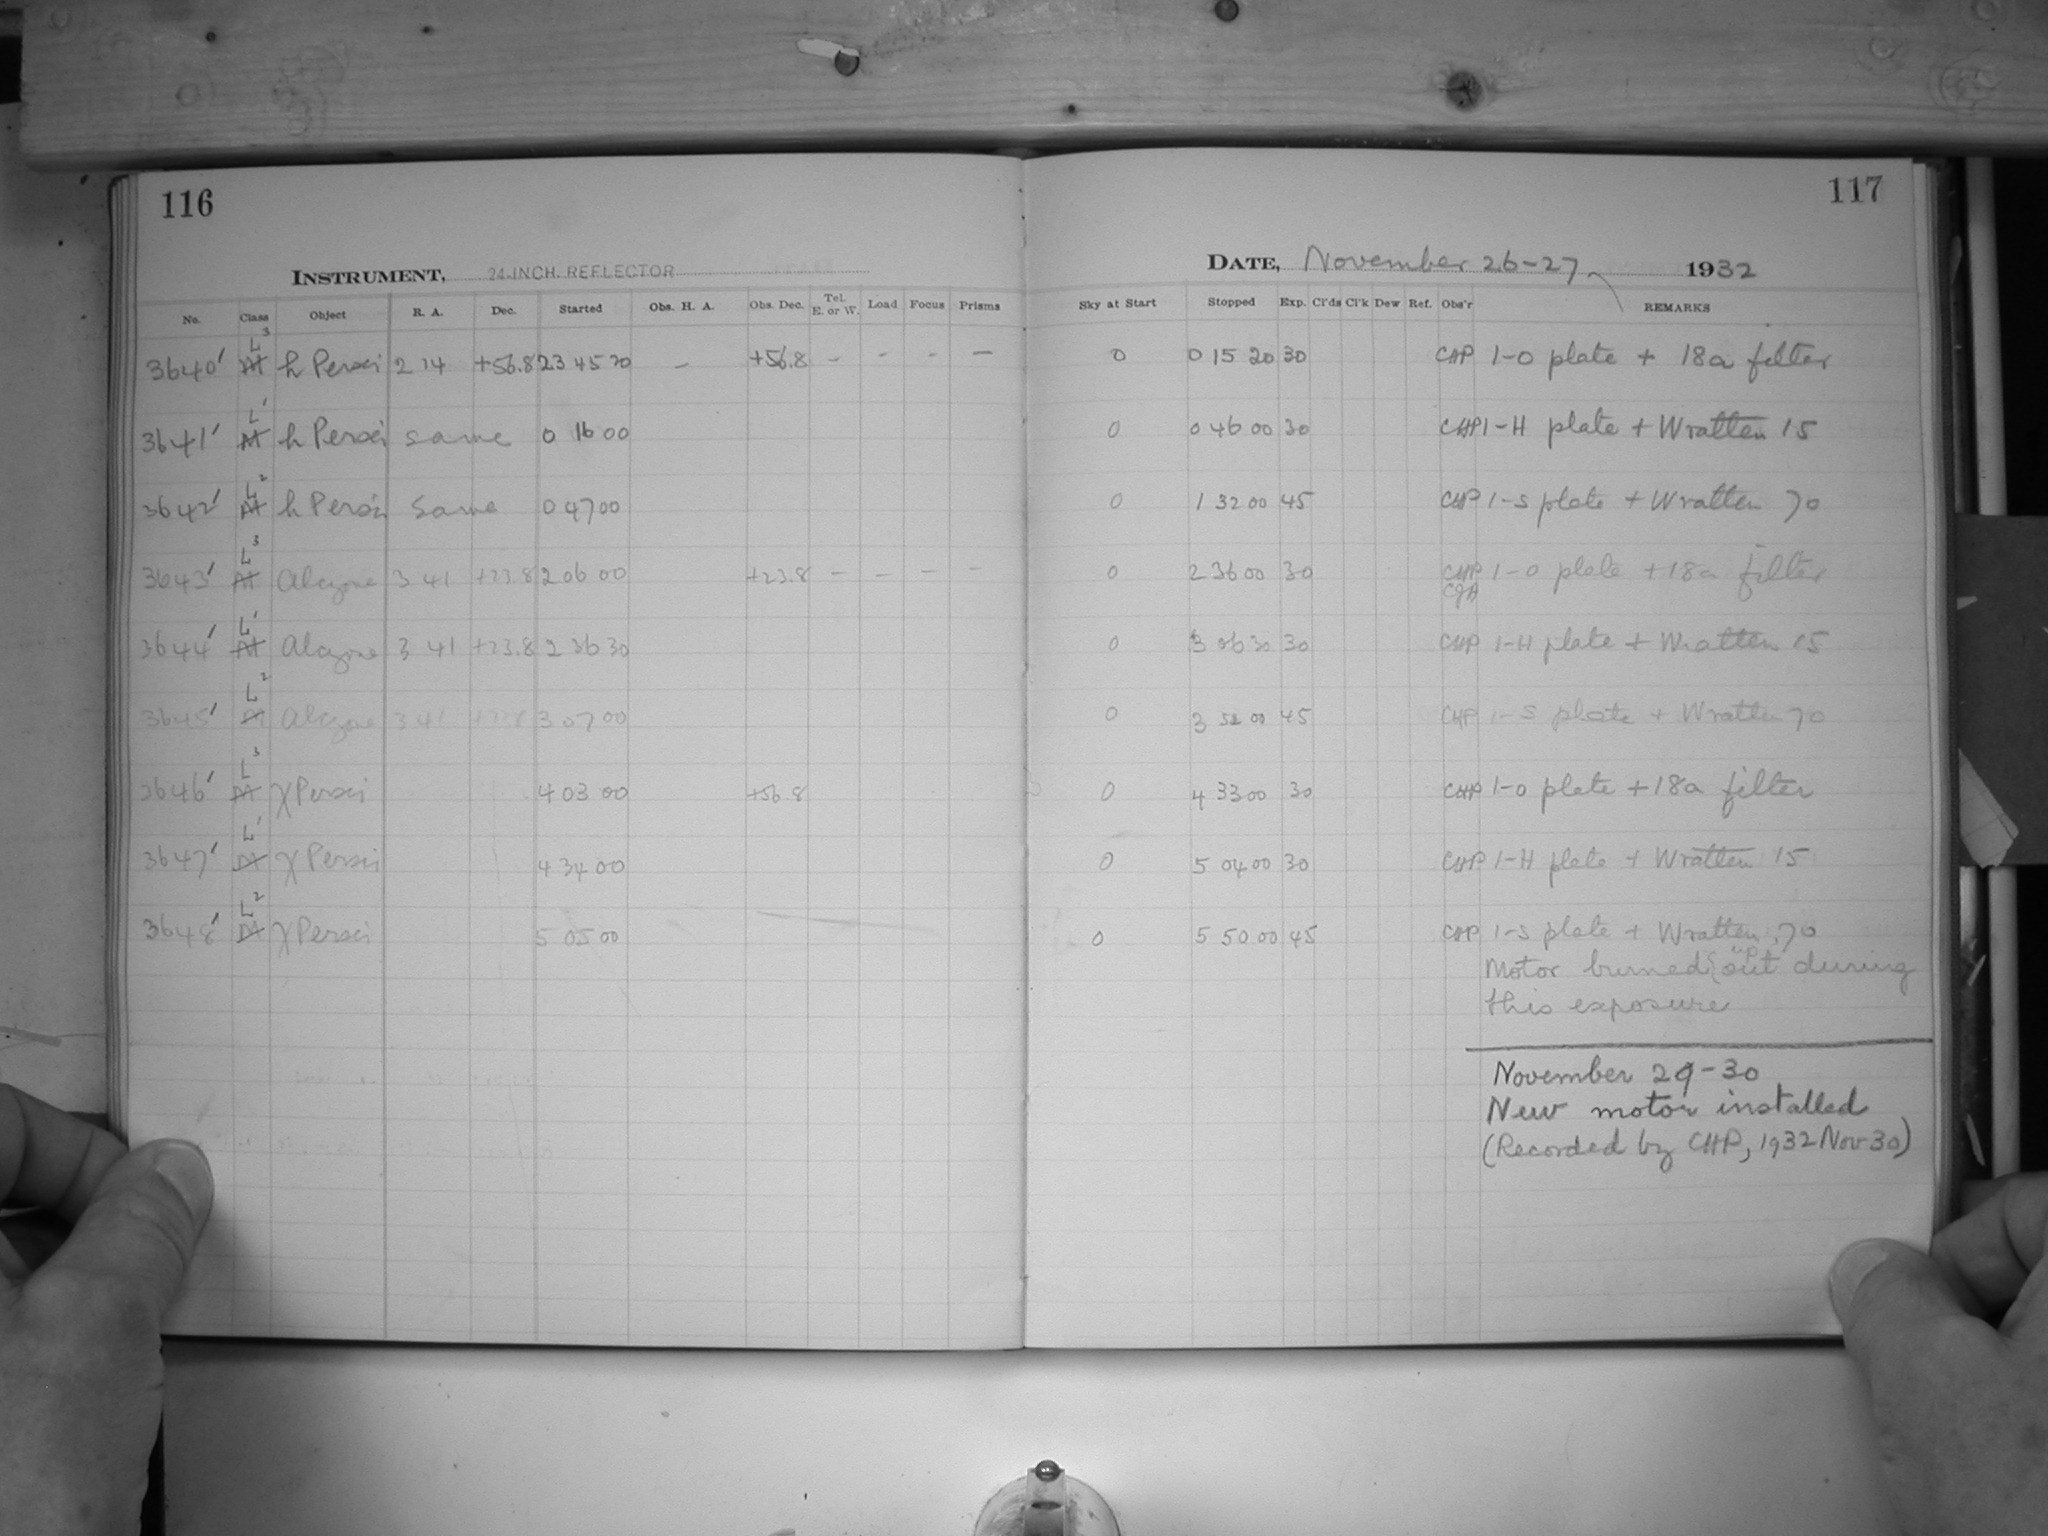 116
117
INSTRUMENT, 24-INCH REFLECTOR
DATE, November 26-27, 1932
No. Class Object R. A. Dec. Started Obs. H. A. Obs. Dec. Tel. E. or W. Load Focus Prisms Sky at Start Stopped Exp. Cl'ds Cl'k Dew Ref. Obs'r REMARKS
3640' L3 h Persei 2 14 +56.8 23 45 20 - +56.8 - - - - 0 0 15 20 30 CHP 1-O plate + 18a filter
3641' L' h Persei same 0 16 00 0 0 46 00 30 CHP 1-H plate + Wratten 15
3642' L2 h Persei same 0 47 00 0 1 32 00 45 CHP 1-S plate + Wratten 70
3643' L3 Alcyone 3 41 +23.8 2 06 00 +23.8 - - - - 0 2 36 00 30 CHP 1-O plate + 18a filter
CJA
3644' L' Alcyone 3 41 +23.8 2 36 30 0 3 06 30 30 CHP 1-H plate + Wratten 15
3645' L2 Alcyone 3 41 +23.8 3 07 00 0 3 52 00 45 CHP 1-S plate + Wratten 70
3646' L3 χ Persei 4 03 00 +56.8 0 4 33 00 30 CHP 1-O plate + 18a filter
3647' L' χ Persei 4 34 00 0 5 04 00 30 CHP 1-H plate + Wratten 15
3648' L2 χ Persei 5 05 00 0 5 50 00 45 CHP 1-S plate + Wratten 70
Motor burned {up out during
this exposure
November 29-30
New motor installed
(Recorded by CHP, 1932 Nov 30)